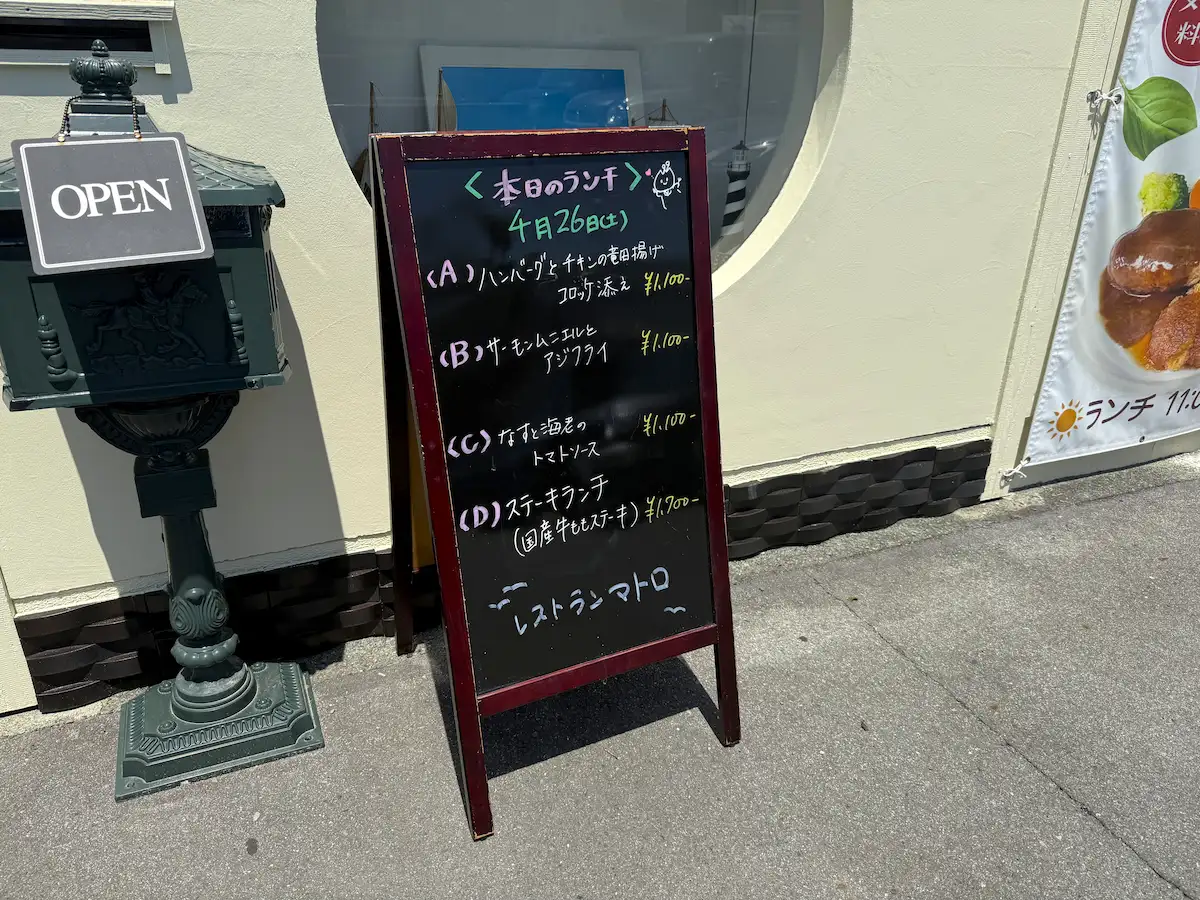 OPEN
<本日のランチ>
4月26日(土)
(A)ハンバーグとチキンの竜田揚げ
コロッケ添え ¥1,100-
(B)サーモンムニエルと
アジフライ ¥1,100-
(C)なすと海老の
トマトソース ¥1,100-
(D)ステーキランチ
(国産牛ももステーキ) ¥1,700-
レストランマトロ
料
ランチ 11:0